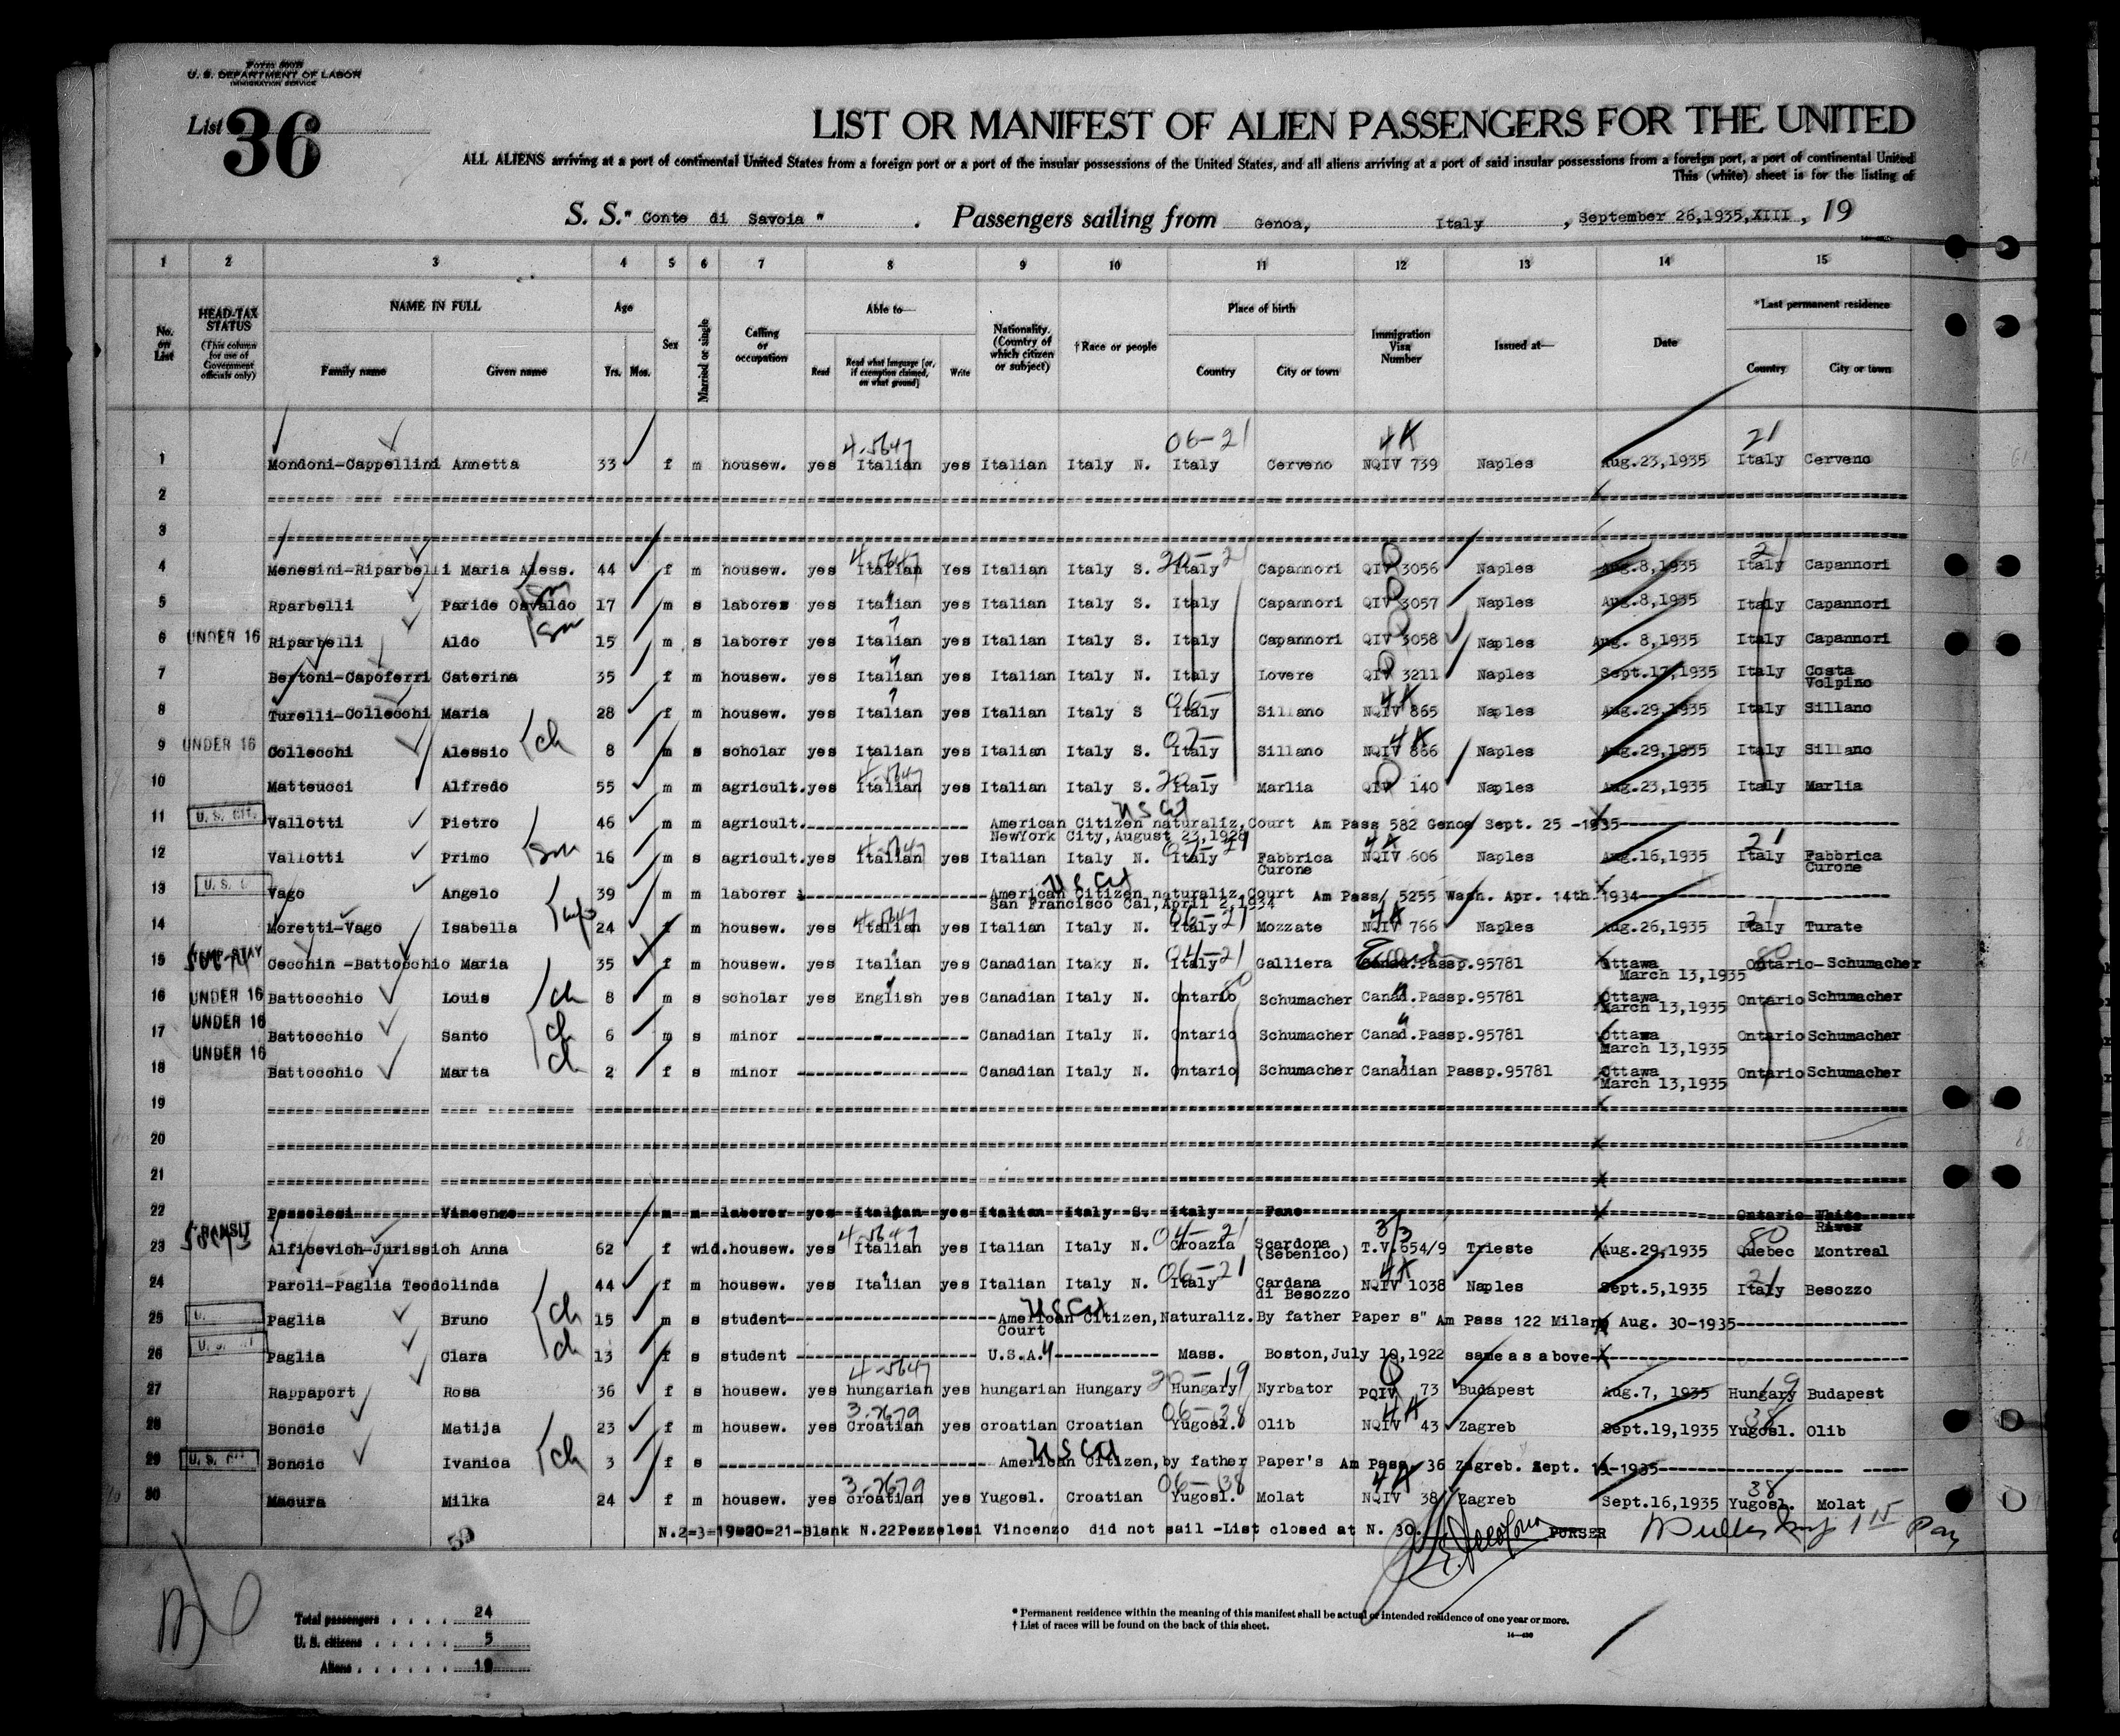 Form 500B
U. S. DEPARTMENT OF LABOR
IMMIGRATION SERVICE
List 36
LIST OR MANIFEST OF ALIEN PASSENGERS FOR THE UNITED
ALL ALIENS arriving at a port of continental United States from a foreign port or a port of the insular possessions of the United States, and all aliens arriving at a port of said insular possessions from a foreign port, a port of continental United
This (white) sheet is for the listing of
S. S. " Conte di Savoia " . Passengers sailing from Genoa, Italy , September 26,1935,XIII , 19
1 2 3 4 5 6 7 8 9 10 11 12 13 14 15
No. on List
HEAD-TAX STATUS (This column for use of Government officials only)
NAME IN FULL Family name Given name
Age Yrs. Mos.
Sex
Married or single
Calling or occupation
Able to— Read Read what language [or, if exemption claimed, on what ground] Write
Nationality. (Country of which citizen or subject)
†Race or people
Place of birth Country City or town
Immigration Visa Number
Issued at—
Date
*Last permanent residence Country City or town
4-5647 06-21 4A 21
1 Mondoni-Cappellini Annetta 33 f m housew. yes Italian yes Italian Italy N. Italy Cerveno NQIV 739 Naples Aug.23,1935 Italy Cerveno
2
3
4-5647 20-21 Q 21
4 Menesini-Riparbelli Maria Aless. 44 f m housew. yes Italian Yes Italian Italy S. Italy Capannori QIV 3056 Naples Aug.8,1935 Italy Capannori
5 Rparbelli Paride Osvaldo 17 m s laborer yes Italian yes Italian Italy S. Italy Capannori QIV 3057 Naples Aug.8,1935 Italy Capannori
6 UNDER 16 Riparbelli Aldo son 15 m s laborer yes Italian yes Italian Italy S. Italy Capannori QIV 3058 Naples Aug. 8,1935 Italy Capannori
7 Bertoni-Capoferri Caterina 35 f m housew. yes Italian yes Italian Italy N. Italy Lovere QIV 3211 Naples Sept.17,1935 Italy Costa Volpino
8 Turelli-Collecchi Maria 28 f m housew. yes Italian yes Italian Italy S Italy Sillano NQIV 865 Naples Aug.29,1935 Italy Sillano
9 UNDER 16 Collecchi Alessio ch 8 m s scholar yes Italian yes Italian Italy S. Italy Sillano NQIV 866 Naples Aug.29,1935 Italy Sillano
10 Matteucci Alfredo 55 m m agricult. yes Italian yes Italian Italy S. Italy Marlia QIV 140 Naples Aug.23,1935 Italy Marlia
11 U. S. CIT. Vallotti Pietro 46 m m agricult. American Citizen naturaliz,Court Am Pass 582 Genoa Sept. 25 -1935
NewYork City,August 23,1928
12 Vallotti Primo son 16 m s agricult. yes Italian yes Italian Italy N. Italy Fabbrica Curone NQIV 606 Naples Aug.16,1935 Italy Fabbrica Curone
13 U. S. Vago Angelo 39 m m laborer American Citizen naturaliz,Court Am Pass 5255 Wash. Apr. 14th 1934
San Francisco Cal,April 2,1934
14 Moretti-Vago Isabella wife 24 f m housew. yes Italian yes Italian Italy N. Italy Mozzate NQIV 766 Naples Aug.26,1935 Italy Turate
15 Cecchin -Battocchio Maria 35 f m housew. yes Italian yes Canadian Itaky N. Italy Galliera Canad.Passp.95781 Ottawa March 13,1935 Ontario-Schumacher
16 UNDER 16 Battocchio Louis ch 8 m s scholar yes English yes Canadian Italy N. Ontario Schumacher Canad.Passp.95781 Ottawa March 13,1935 Ontario Schumacher
17 UNDER 16 Battocchio Santo ch 6 m s minor Canadian Italy N. Ontario Schumacher Canad.Passp.95781 Ottawa March 13,1935 Ontario Schumacher
18 UNDER 16 Battocchio Marta ch 2 f s minor Canadian Italy N. Ontario Schumacher Canadian Passp.95781 Ottawa March 13,1935 Ontario Schumacher
19
20
21
22 Pezzolesi Vincenzo m m laborer yes Italian yes Italian Italy S. Italy Fano Ontario White River
23 TRANSIT Alficevich-Jurissich Anna 62 f wid. housew. yes Italian yes Italian Italy N. Croazia Scardona (Sebenico) T.V.654/9 Trieste Aug.29,1935 Quebec Montreal
24 Paroli-Paglia Teodolinda 44 f m housew. yes Italian yes Italian Italy N. Italy Cardana di Besozzo NQIV 1038 Naples Sept.5,1935 Italy Besozzo
25 Paglia Bruno ch 15 m s student American Citizen,Naturaliz.By father Paper s" Am Pass 122 Milano Aug. 30-1935
Court
26 Paglia Clara ch 13 f s student U.S.A. Mass. Boston,July 10,1922 same as above
27 Rappaport Rosa 36 f s housew. yes hungarian yes hungarian Hungary Hungary Nyrbator PQIV 73 Budapest Aug.7, 1935 Hungary Budapest
28 Boncic Matija 23 f m housew. yes Croatian yes croatian Croatian Yugosl. Olib NQIV 43 Zagreb Sept.19,1935 Yugosl. Olib
29 U. S. CIT. Boncic Ivanica ch 3 f s American Citizen,by father Paper's Am Pass 36 Zagreb. Sept. 19-1935
30 Macura Milka 24 f m housew. yes croatian yes Yugosl. Croatian Yugosl. Molat NQIV 38 Zagreb Sept.16,1935 Yugosl. Molat
N.2=3=19=20=21-Blank N.22Pezzolesi Vincenzo did not sail -List closed at N. 30. PURSER
Total passengers . . . . 24
U. S. citizens . . . . . 5
Aliens . . . . . . 19
* Permanent residence within the meaning of this manifest shall be actual or intended residence of one year or more.
† List of races will be found on the back of this sheet.